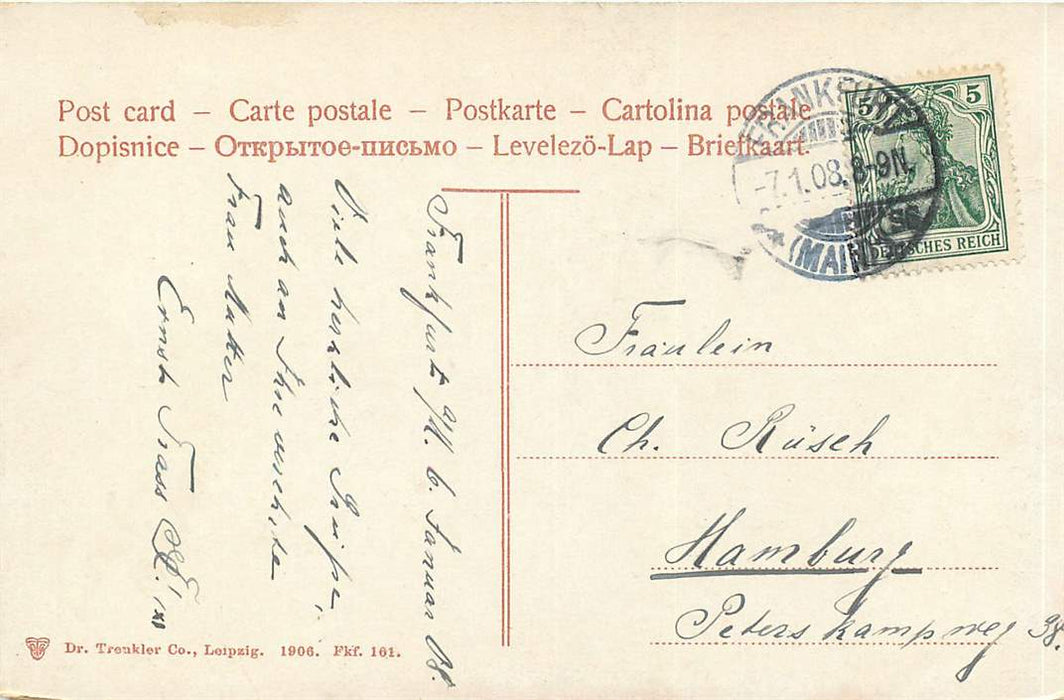 Post card – Carte postale – Postkarte – Cartolina postale
Dopisnice – Открытое-письмо – Levelező-Lap – Briefkaart.
FRANKFURT
-7.1.08. 8-9N.
(MAIN)
5 5
DEUTSCHES REICH
Frankfurt a/M. 6. Januar 08.
Viele herzliche Grüsse,
auch an Ihre verehrte
Frau Mutter
Ernst
Fräulein
Ch. Rüsch
Hamburg
Peterskampweg 38.
Dr. Trenkler Co., Leipzig. 1906. Fkf. 161.